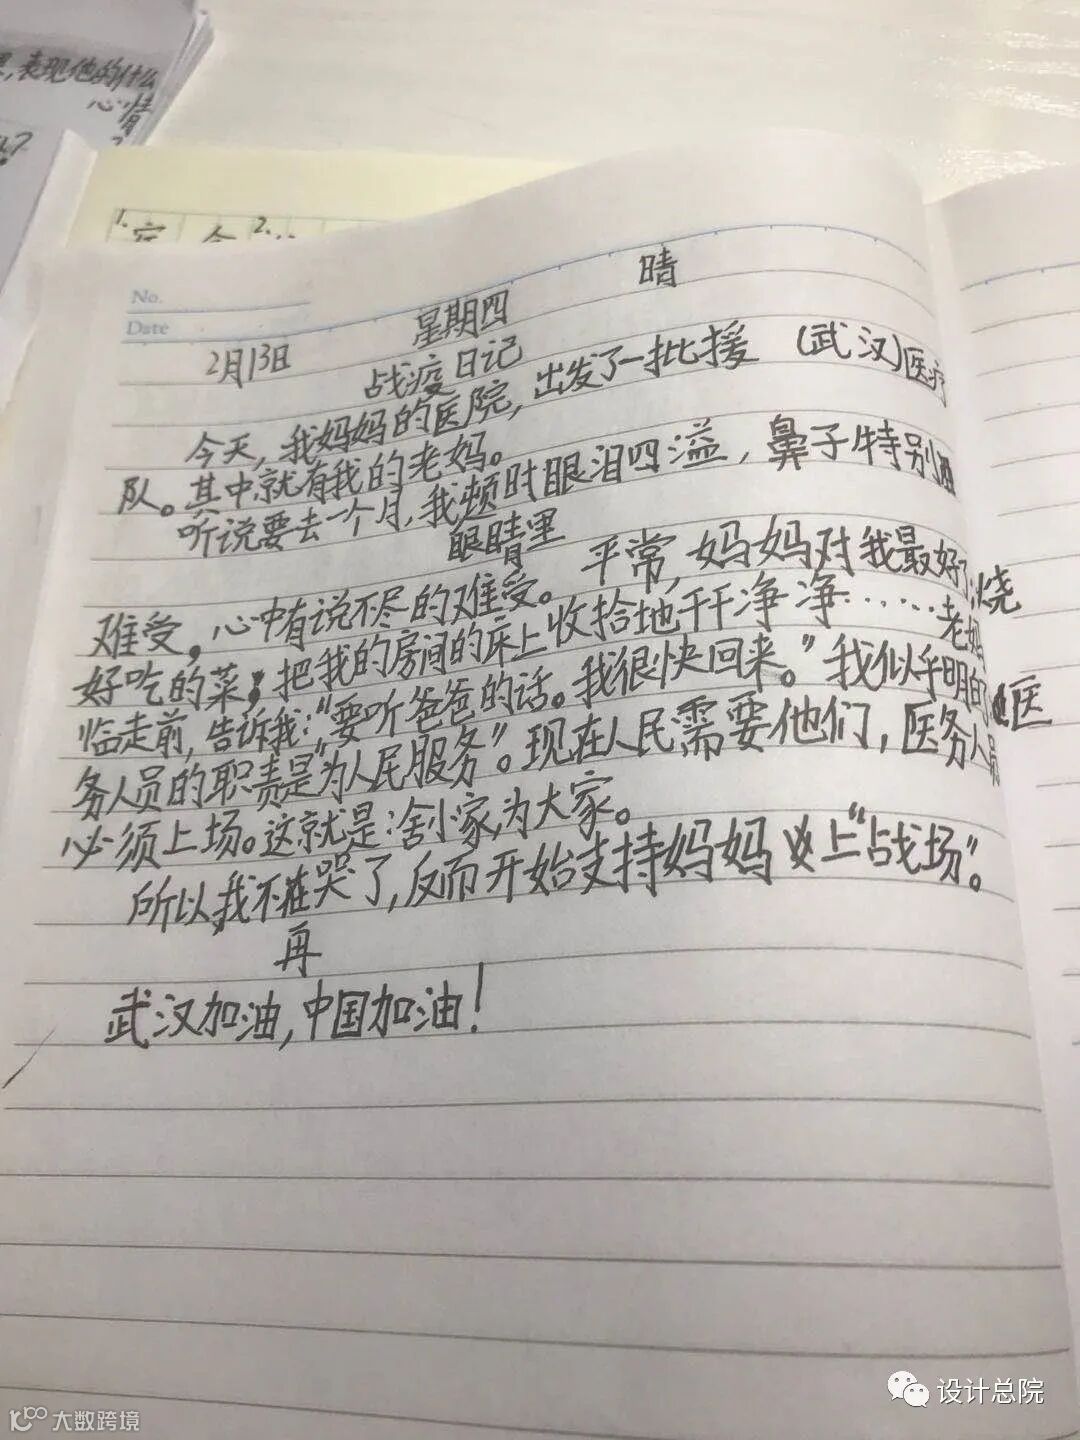 表现他的什么
心情
1.
2.
No.
Date
2月13日 星期四 晴
战疫日记
今天,我妈妈的医院,出发了一批援(武汉)医疗
队。其中就有我的老妈。
听说要去一个月,我顿时眼泪四溢,鼻子特别
眼睛里
难受,心中有说不尽的难受。平常,妈妈对我最好了,烧
好吃的菜,把我的房间的床上收拾地干干净净……老妈
临走前,告诉我:“要听爸爸的话。我很快回来。”我似乎明白医
务人员的职责是“为人民服务”。现在人民需要他们,医务人员
必须上场。这就是舍小家,为大家。
所以,我不在哭了,反而开始支持妈妈上“战场”。
再
武汉加油,中国加油!
设计总院
大数跨境